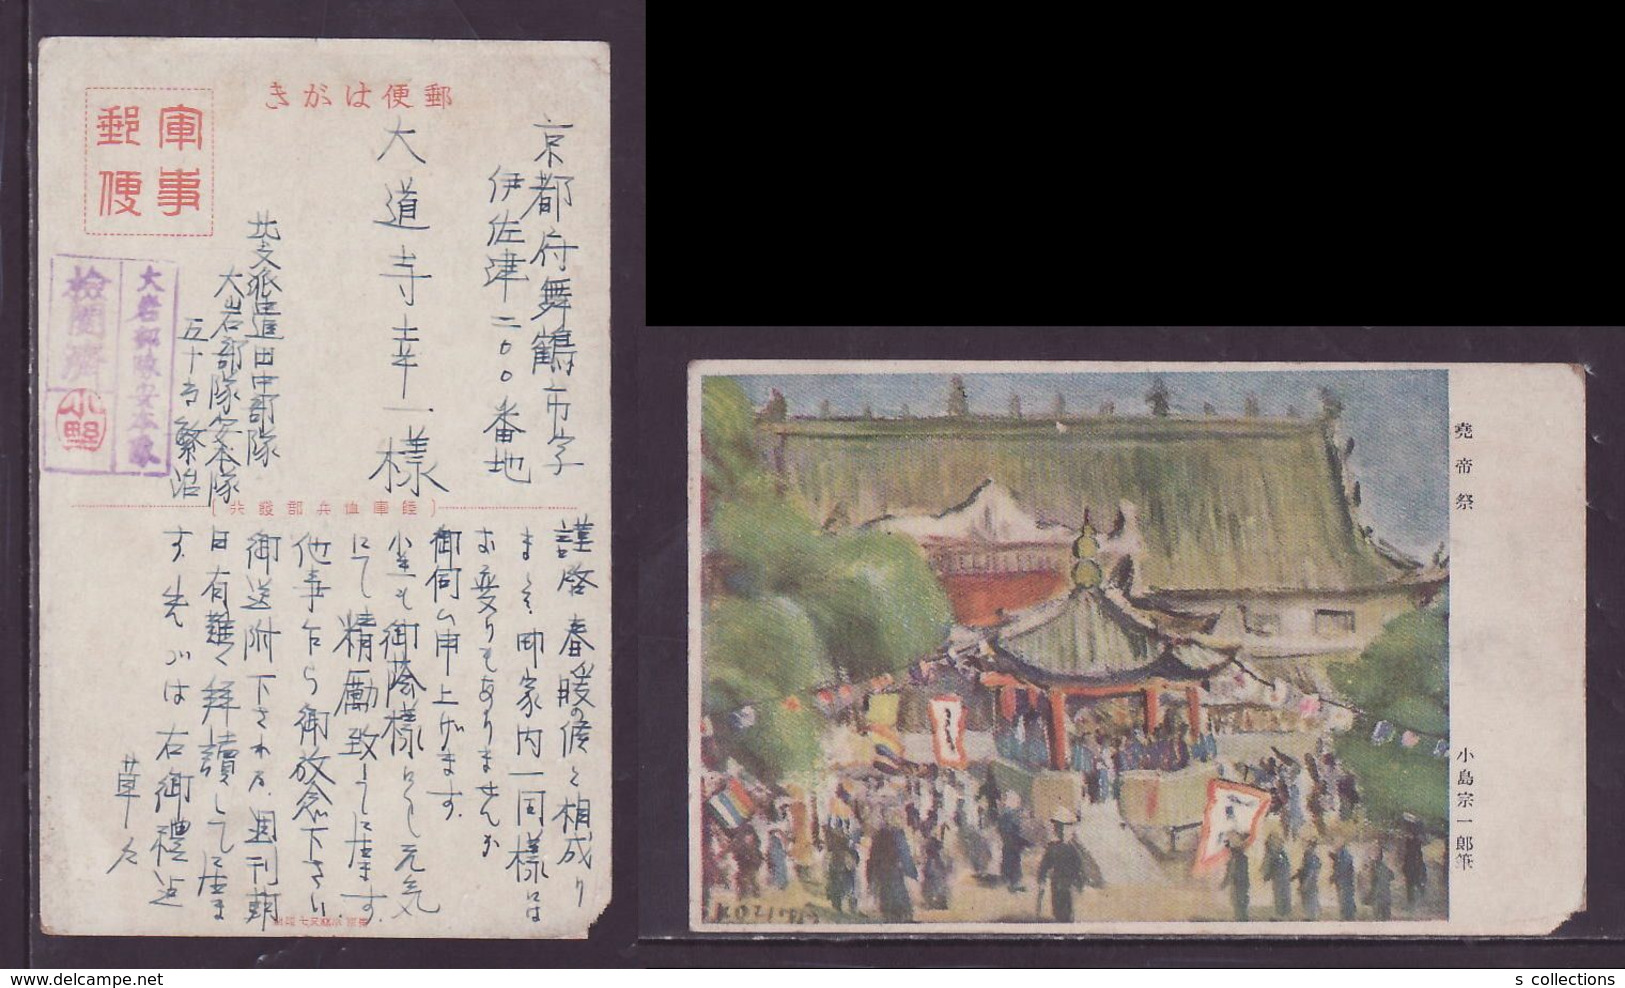 郵便はがき
軍事
郵便
京都府舞鶴市字
伊佐津二〇〇番地
大道寺幸一様
北支派遣田中部隊
大岩部隊安本隊
五十 繁治
大岩部隊安本隊
検閲済
小野
陸軍恤兵部發行
謹啓春暖の候と相成り
ました 御家内一同様には
お変りもありませんか
御伺ひ申上げます
小生も御蔭様にて元気
にて精励致して居ます
他事乍ら御放念下さい
御送附下される週刊朝
日有難く拝讀して居ま
す 先づは右御禮迄
草々
堯帝祭
小島宗一郎筆
s collections